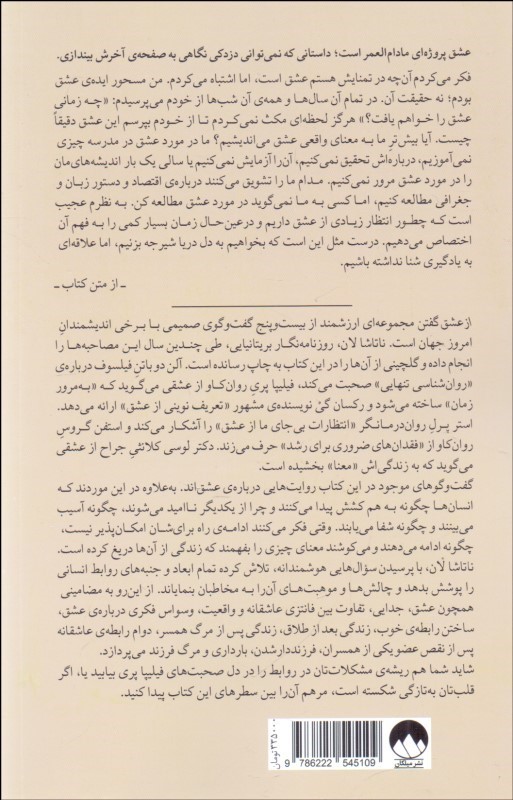 عشق پروژه‌ای مادام‌العمر است؛ داستانی که نمی‌توانی دزدکی نگاهی به صفحه‌ی آخرش بیندازی.
فکر می‌کردم آن‌چه در تمنایش هستم عشق است، اما اشتباه می‌کردم. من مسحور ایده‌ی عشق
بودم؛ نه حقیقت آن. در تمام آن سال‌ها و همه‌ی آن شب‌ها از خودم می‌پرسیدم: «چه زمانی
عشق را خواهم یافت؟» هرگز لحظه‌ای مکث نمی‌کردم تا از خودم بپرسم این عشق دقیقاً
چیست. آیا بیش‌تر ما به معنای واقعی عشق می‌اندیشیم؟ ما در مورد عشق در مدرسه چیزی
نمی‌آموزیم، درباره‌اش تحقیق نمی‌کنیم، آن‌را آزمایش نمی‌کنیم یا سالی یک بار اندیشه‌های‌مان
را در مورد عشق مرور نمی‌کنیم. مدام ما را تشویق می‌کنند درباره‌ی اقتصاد و دستور زبان و
جغرافی مطالعه کنیم، اما کسی به ما نمی‌گوید در مورد عشق مطالعه کن. به نظرم عجیب
است که چطور انتظار زیادی از عشق داریم و درعین‌حال زمان بسیار کمی را به فهم آن
اختصاص می‌دهیم. درست مثل این است که بخواهیم به دل دریا شیرجه بزنیم، اما علاقه‌ای
به یادگیری شنا نداشته باشیم.
ـ از متن کتاب ـ
از عشق گفتن مجموعه‌ای ارزشمند از بیست‌وپنج گفت‌وگوی صمیمی با برخی اندیشمندانِ
امروز جهان است. ناتاشا لان، روزنامه‌نگار بریتانیایی، طی چندین سال این مصاحبه‌ها را
انجام داده و گلچینی از آن‌ها را در این کتاب به چاپ رسانده است. آلن دو باتنِ فیلسوف درباره‌ی
«روان‌شناسی تنهایی» صحبت می‌کند، فیلیپا پریِ روان‌کاو از عشقی می‌گوید که «به‌مرور
زمان» ساخته می‌شود و رکسان گیْ نویسنده‌ی مشهور «تعریف نوینی از عشق» ارائه می‌دهد.
استر پرلِ روان‌درمانگر «انتظارات بی‌جای ما از عشق» را آشکار می‌کند و استفن گروسِ
روان‌کاو از «فقدان‌های ضروری برای رشد» حرف می‌زند. دکتر لوسی کلانثیِ جراح از عشقی
می‌گوید که به زندگی‌اش «معنا» بخشیده است.
گفت‌وگوهای موجود در این کتاب روایت‌هایی درباره‌ی عشق‌اند. به‌علاوه در این موردند که
انسان‌ها چگونه به هم کشش پیدا می‌کنند و چرا از یکدیگر ناامید می‌شوند، چگونه آسیب
می‌بینند و چگونه شفا می‌یابند. وقتی فکر می‌کنند ادامه‌ی راه برای‌شان امکان‌پذیر نیست،
چگونه ادامه می‌دهند و می‌کوشند معنای چیزی را بفهمند که زندگی از آن‌ها دریغ کرده است.
ناتاشا لان، با پرسیدن سؤال‌هایی هوشمندانه، تلاش کرده تمام ابعاد و جنبه‌های روابط انسانی
را پوشش بدهد و چالش‌ها و موهبت‌های آن‌را به مخاطبان بنمایاند. از این‌رو به مضامینی
همچون عشق، جدایی، تفاوت بین فانتزی عاشقانه و واقعیت، وسواس فکری درباره‌ی عشق،
ساختن رابطه‌ی خوب، زندگی بعد از طلاق، زندگی پس از مرگ همسر، دوام رابطه‌ی عاشقانه
پس از نقص عضو یکی از همسران، فرزنددارشدن، بارداری و مرگ فرزند می‌پردازد.
شاید شما هم ریشه‌ی مشکلات‌تان در روابط را در دل صحبت‌های فیلیپا پری بیابید یا، اگر
قلب‌تان به‌تازگی شکسته است، مرهم آن‌را بین سطرهای این کتاب پیدا کنید.
۳۳۵۰۰۰ تومان
9 786222 545109
نشر میلکان